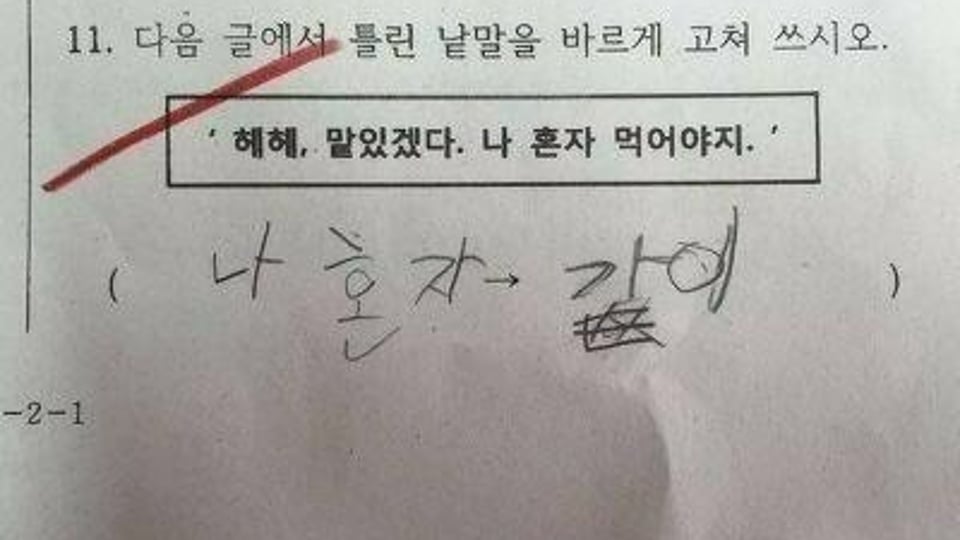 11. 다음 글에서 틀린 낱말을 바르게 고쳐 쓰시오.
' 헤헤, 맡있겠다. 나 혼자 먹어야지. '
( 나 혼자 → )
-2-1